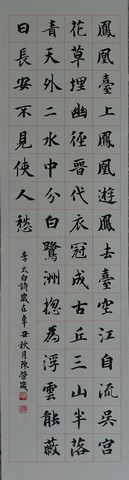 鳳凰臺上鳳凰遊鳳去臺空江自流吳宮
花草埋幽徑晉代衣冠成古丘三山半落
青天外二水中分白鷺洲揔為浮雲能蔽
日長安不見使人愁
李太白詩歲在辛丑秋月陳